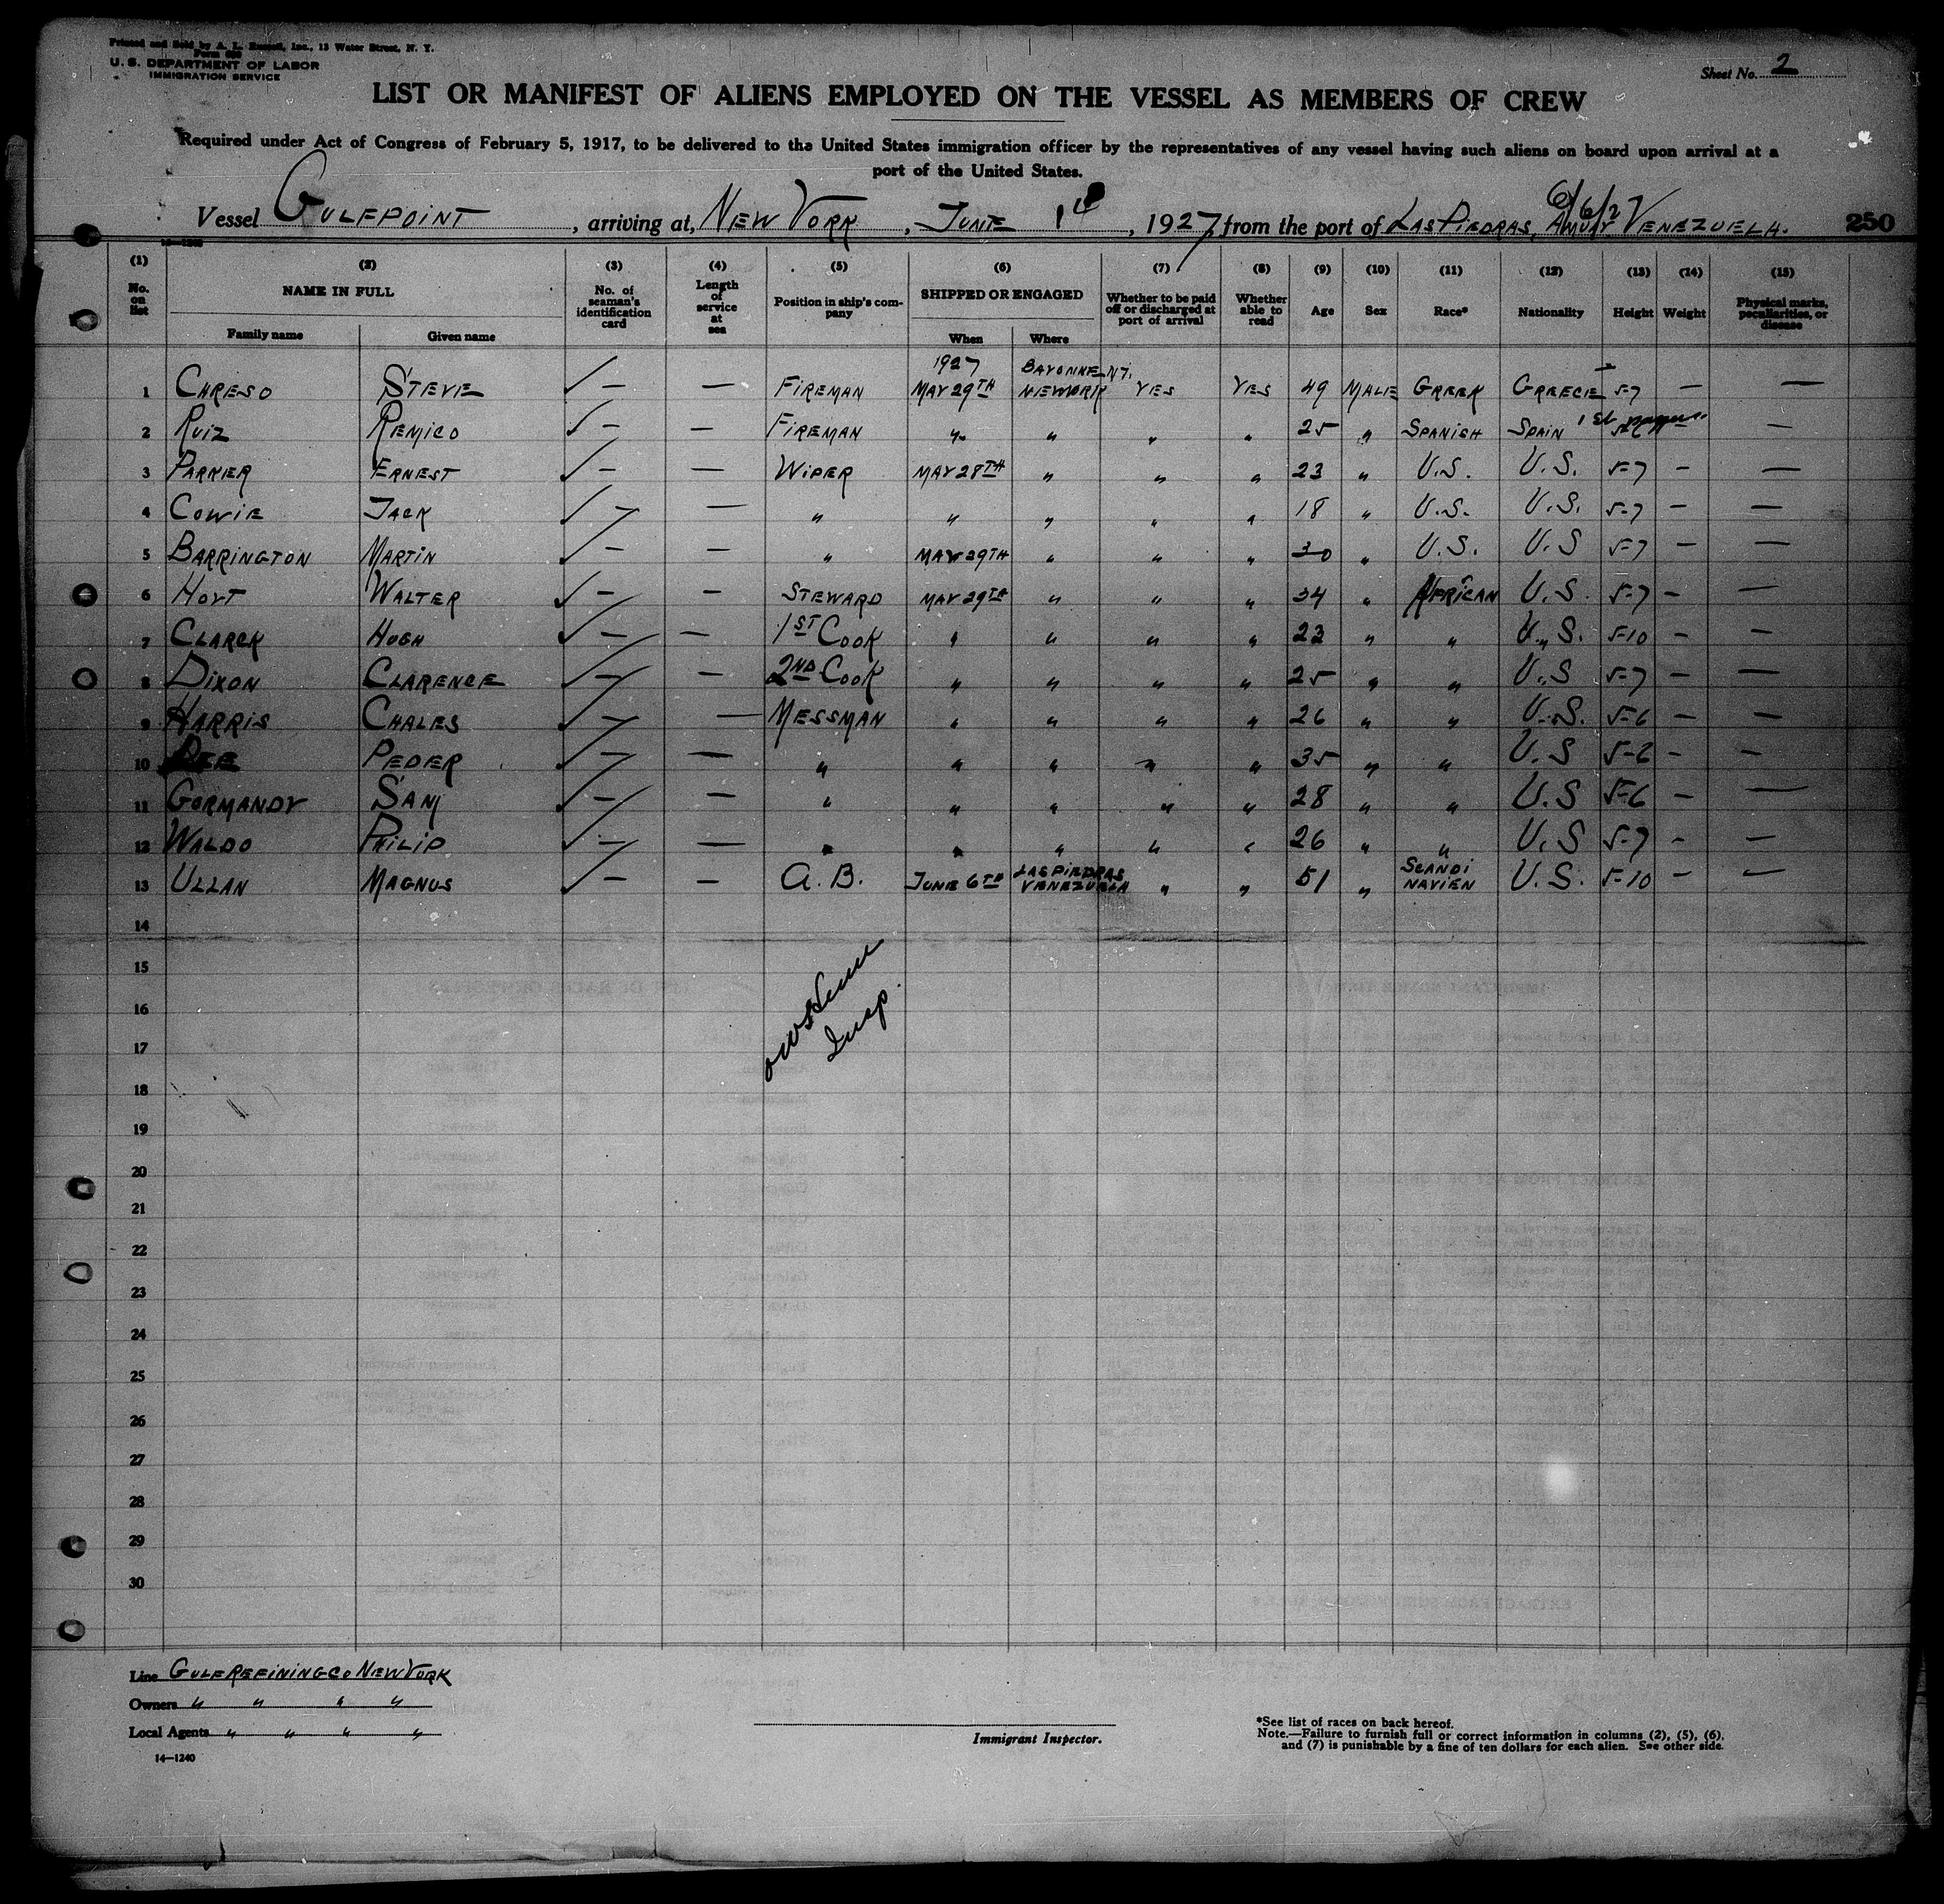 Printed and Sold by A. L. Russell, Inc., 13 Water Street, N. Y.
U. S. DEPARTMENT OF LABOR
IMMIGRATION SERVICE
Sheet No. 2
LIST OR MANIFEST OF ALIENS EMPLOYED ON THE VESSEL AS MEMBERS OF CREW
Required under Act of Congress of February 5, 1917, to be delivered to the United States immigration officer by the representatives of any vessel having such aliens on board upon arrival at a
port of the United States.
6/6/27
Vessel GULFPOINT, arriving at, NEW YORK, JUNE 14, 1927, from the port of LAS PIEDRAS, AMUAY VENEZUELA. 250
(1) (2) (3) (4) (5) (6) (7) (8) (9) (10) (11) (12) (13) (14) (15)
No. on list NAME IN FULL No. of seaman's identification card Length of service at sea Position in ship's company SHIPPED OR ENGAGED Whether to be paid off or discharged at port of arrival Whether able to read Age Sex Race* Nationality Height Weight Physical marks, peculiarities, or disease
Family name Given name When Where
1927 BAYONNE N.J.
1 CARESO STEVE ✓ — — FIREMAN MAY 29TH NEW YORK YES YES 49 MALE GREEK GREECE 5-7 — —
2 RUIZ REMICO ✓ — — FIREMAN " " " " 25 " SPANISH SPAIN — —
3 PARKER ERNEST ✓ — — WIPER MAY 28TH " " " 23 " U.S. U.S. 5-7 — —
4 COWIE JACK ✓ — — " " " " " 18 " U.S. U.S. 5-7 — —
5 BARRINGTON MARTIN ✓ — — " MAY 29TH " " " 30 " U.S. U.S 5-7 — —
6 HOYT WALTER ✓ — — STEWARD MAY 29TH " " " 34 " AFRICAN U.S. 5-7 — —
7 CLARCK HUGH ✓ — — 1ST COOK " " " " 22 " " U.S. 5-10 — —
8 DIXON CLARENCE ✓ — — 2ND COOK " " " " 25 " " U.S 5-7 — —
9 HARRIS CHALES ✓ — — MESSMAN " " " " 26 " " U.S. 5-6 — —
10 PEDER ✓ — — " " " " " 35 " " U.S 5-6 — —
11 GORMANDY SAM ✓ — — " " " " " 28 " " U.S 5-6 — —
12 WALDO PHILIP ✓ — — " " " " " 26 " " U.S 5-7 — —
13 ULLAN MAGNUS ✓ — — A.B. JUNE 6TH LAS PIEDRAS VENEZUELA " " 51 " SCANDINAVIEN U.S. 5-10 — —
14
15
16
Insp.
17
18
19
20
21
22
23
24
25
26
27
28
29
30
Line GULF REFINING CO NEW YORK
Owners " " " "
Local Agents " " " "
14—1240
Immigrant Inspector.
*See list of races on back hereof.
Note.—Failure to furnish full or correct information in columns (2), (5), (6),
and (7) is punishable by a fine of ten dollars for each alien. See other side.